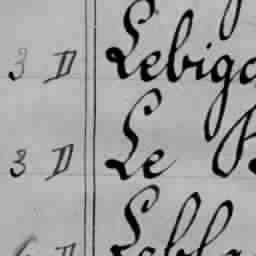 3 D Lebiga
3 D Le
D Lebla